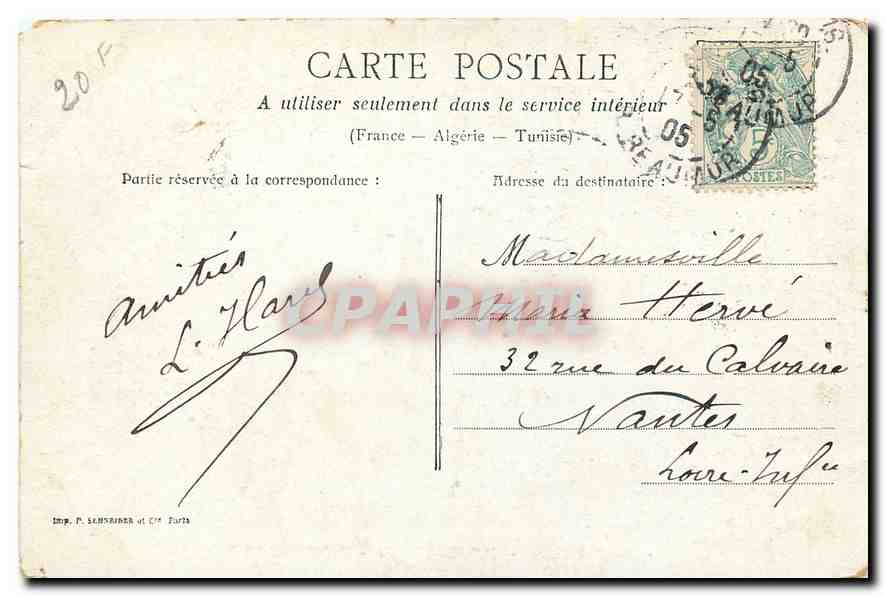 20 F
CARTE POSTALE
A utiliser seulement dans le service intérieur
(France — Algérie — Tunisie)
Partie réservée à la correspondance :
Adresse du destinataire :
05
REAUMUR
POSTES
Amitiés
L. Harel
Mademoiselle
Maria Hervé
32 rue du Calvaire
Nantes
Loire-Infre
CPAPHIL
Imp. P. SCHREIBER et Cie Paris